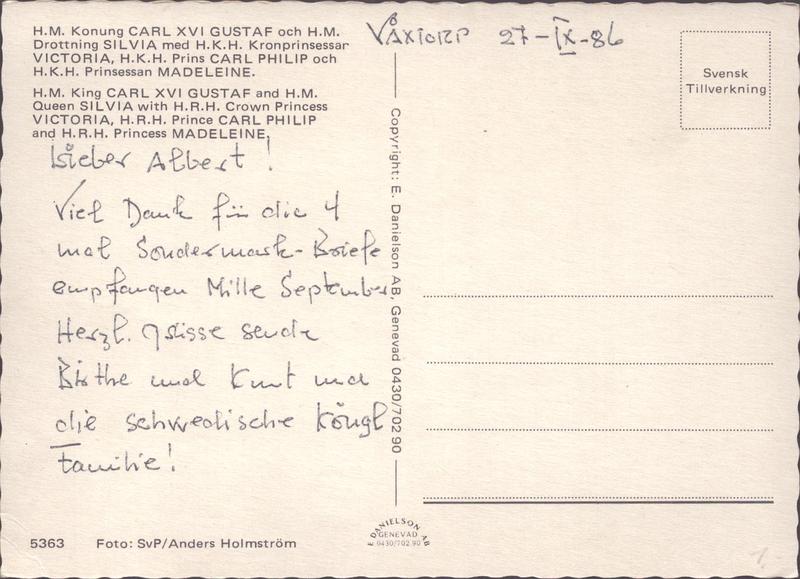 H.M. Konung CARL XVI GUSTAF och H.M.
Drottning SILVIA med H.K.H. Kronprinsessar
VICTORIA, H.K.H. Prins CARL PHILIP och
H.K.H. Prinsessan MADELEINE.
H.M. King CARL XVI GUSTAF and H.M.
Queen SILVIA with H.R.H. Crown Princess
VICTORIA, H.R.H. Prince CARL PHILIP
and H.R.H. Princess MADELEINE.
VÅXTORP 27-IX-86
Svensk
Tillverkning
Lieber Albert!
Viel Dank für die 4
mal Sondermark-Briefe
empfangen Mille September.
Herzl. Grüsse sende
Birthe und Knut und
die schwedische Köngl
Familie!
Copyright: E. Danielson AB, Genevad 0430/702 90
5363 Foto: SvP/Anders Holmström
E DANIELSON AB
GENEVAD
0430/702 90
1.-